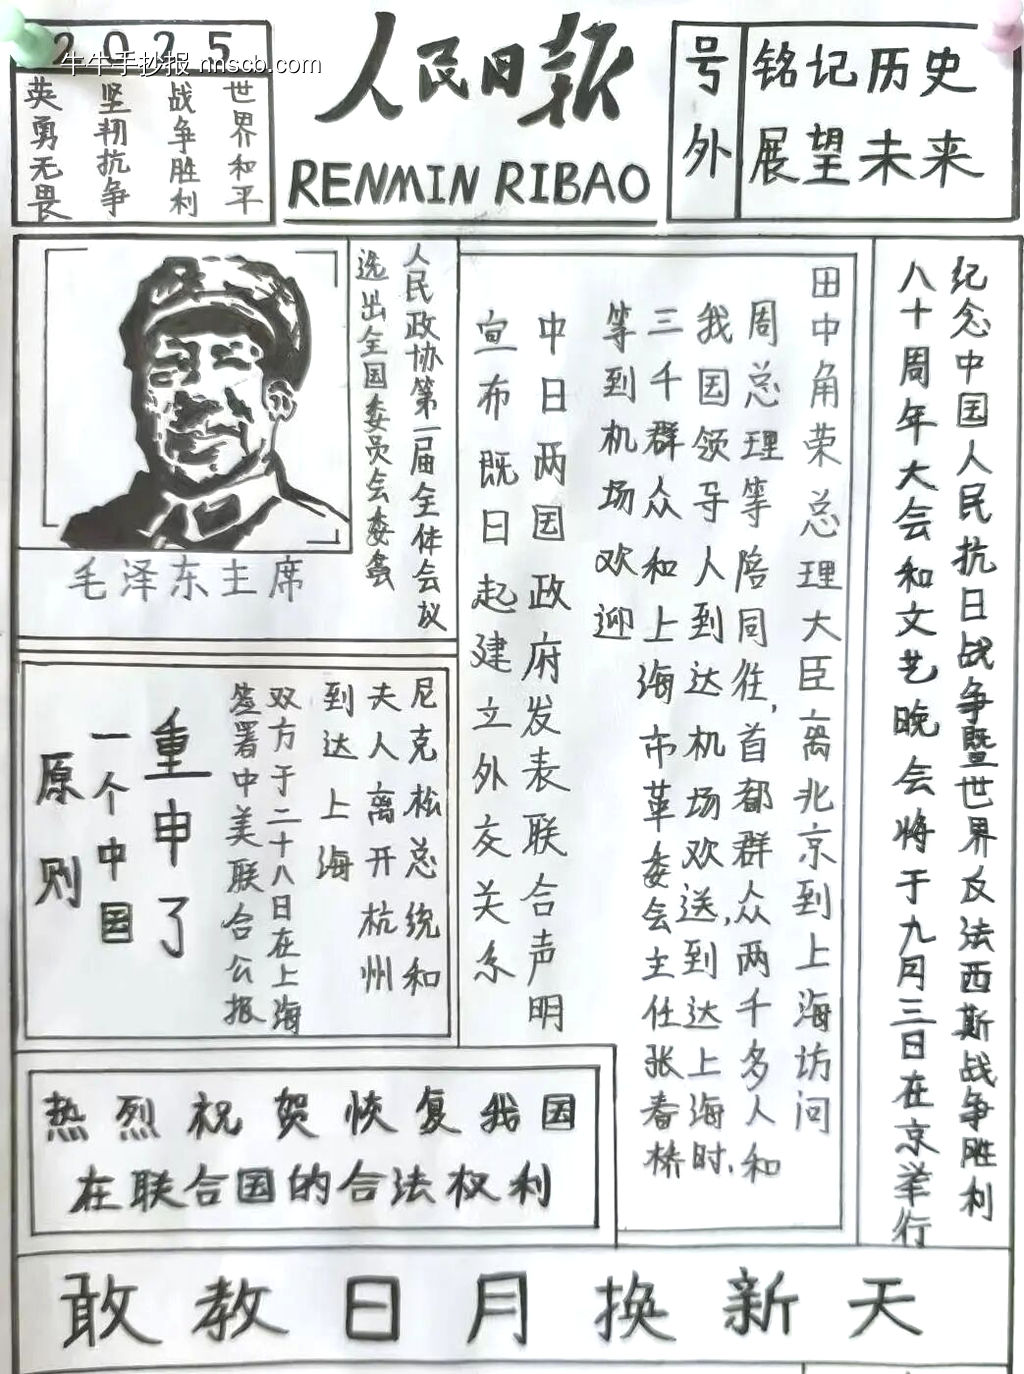 2025
牛牛手抄报 nnscb.com
世界和平
战争胜利
坚韧抗争
英勇无畏
人民日报
RENMIN RIBAO
号外
铭记历史
展望未来
纪念中国人民抗日战争暨世界反法西斯战争胜利
八十周年大会和文艺晚会将于九月三日在京举行
田中角荣总理大臣离北京到上海访问
周总理等陪同往,首都群众两千多人和
我国领导人到达机场欢送,到达上海时,
三千群众和上海市革委会主任张春桥
等到机场欢迎
中日两国政府发表联合声明
宣布既日起建立外交关系
人民政协第一届全体会议
选出全国委员会委员
毛泽东主席
尼克松总统和
夫人离开杭州
到达上海
双方于二十八日在上海
签署中美联合公报
重申了
一个中国
原则
热烈祝贺恢复我国
在联合国的合法权利
敢教日月换新天